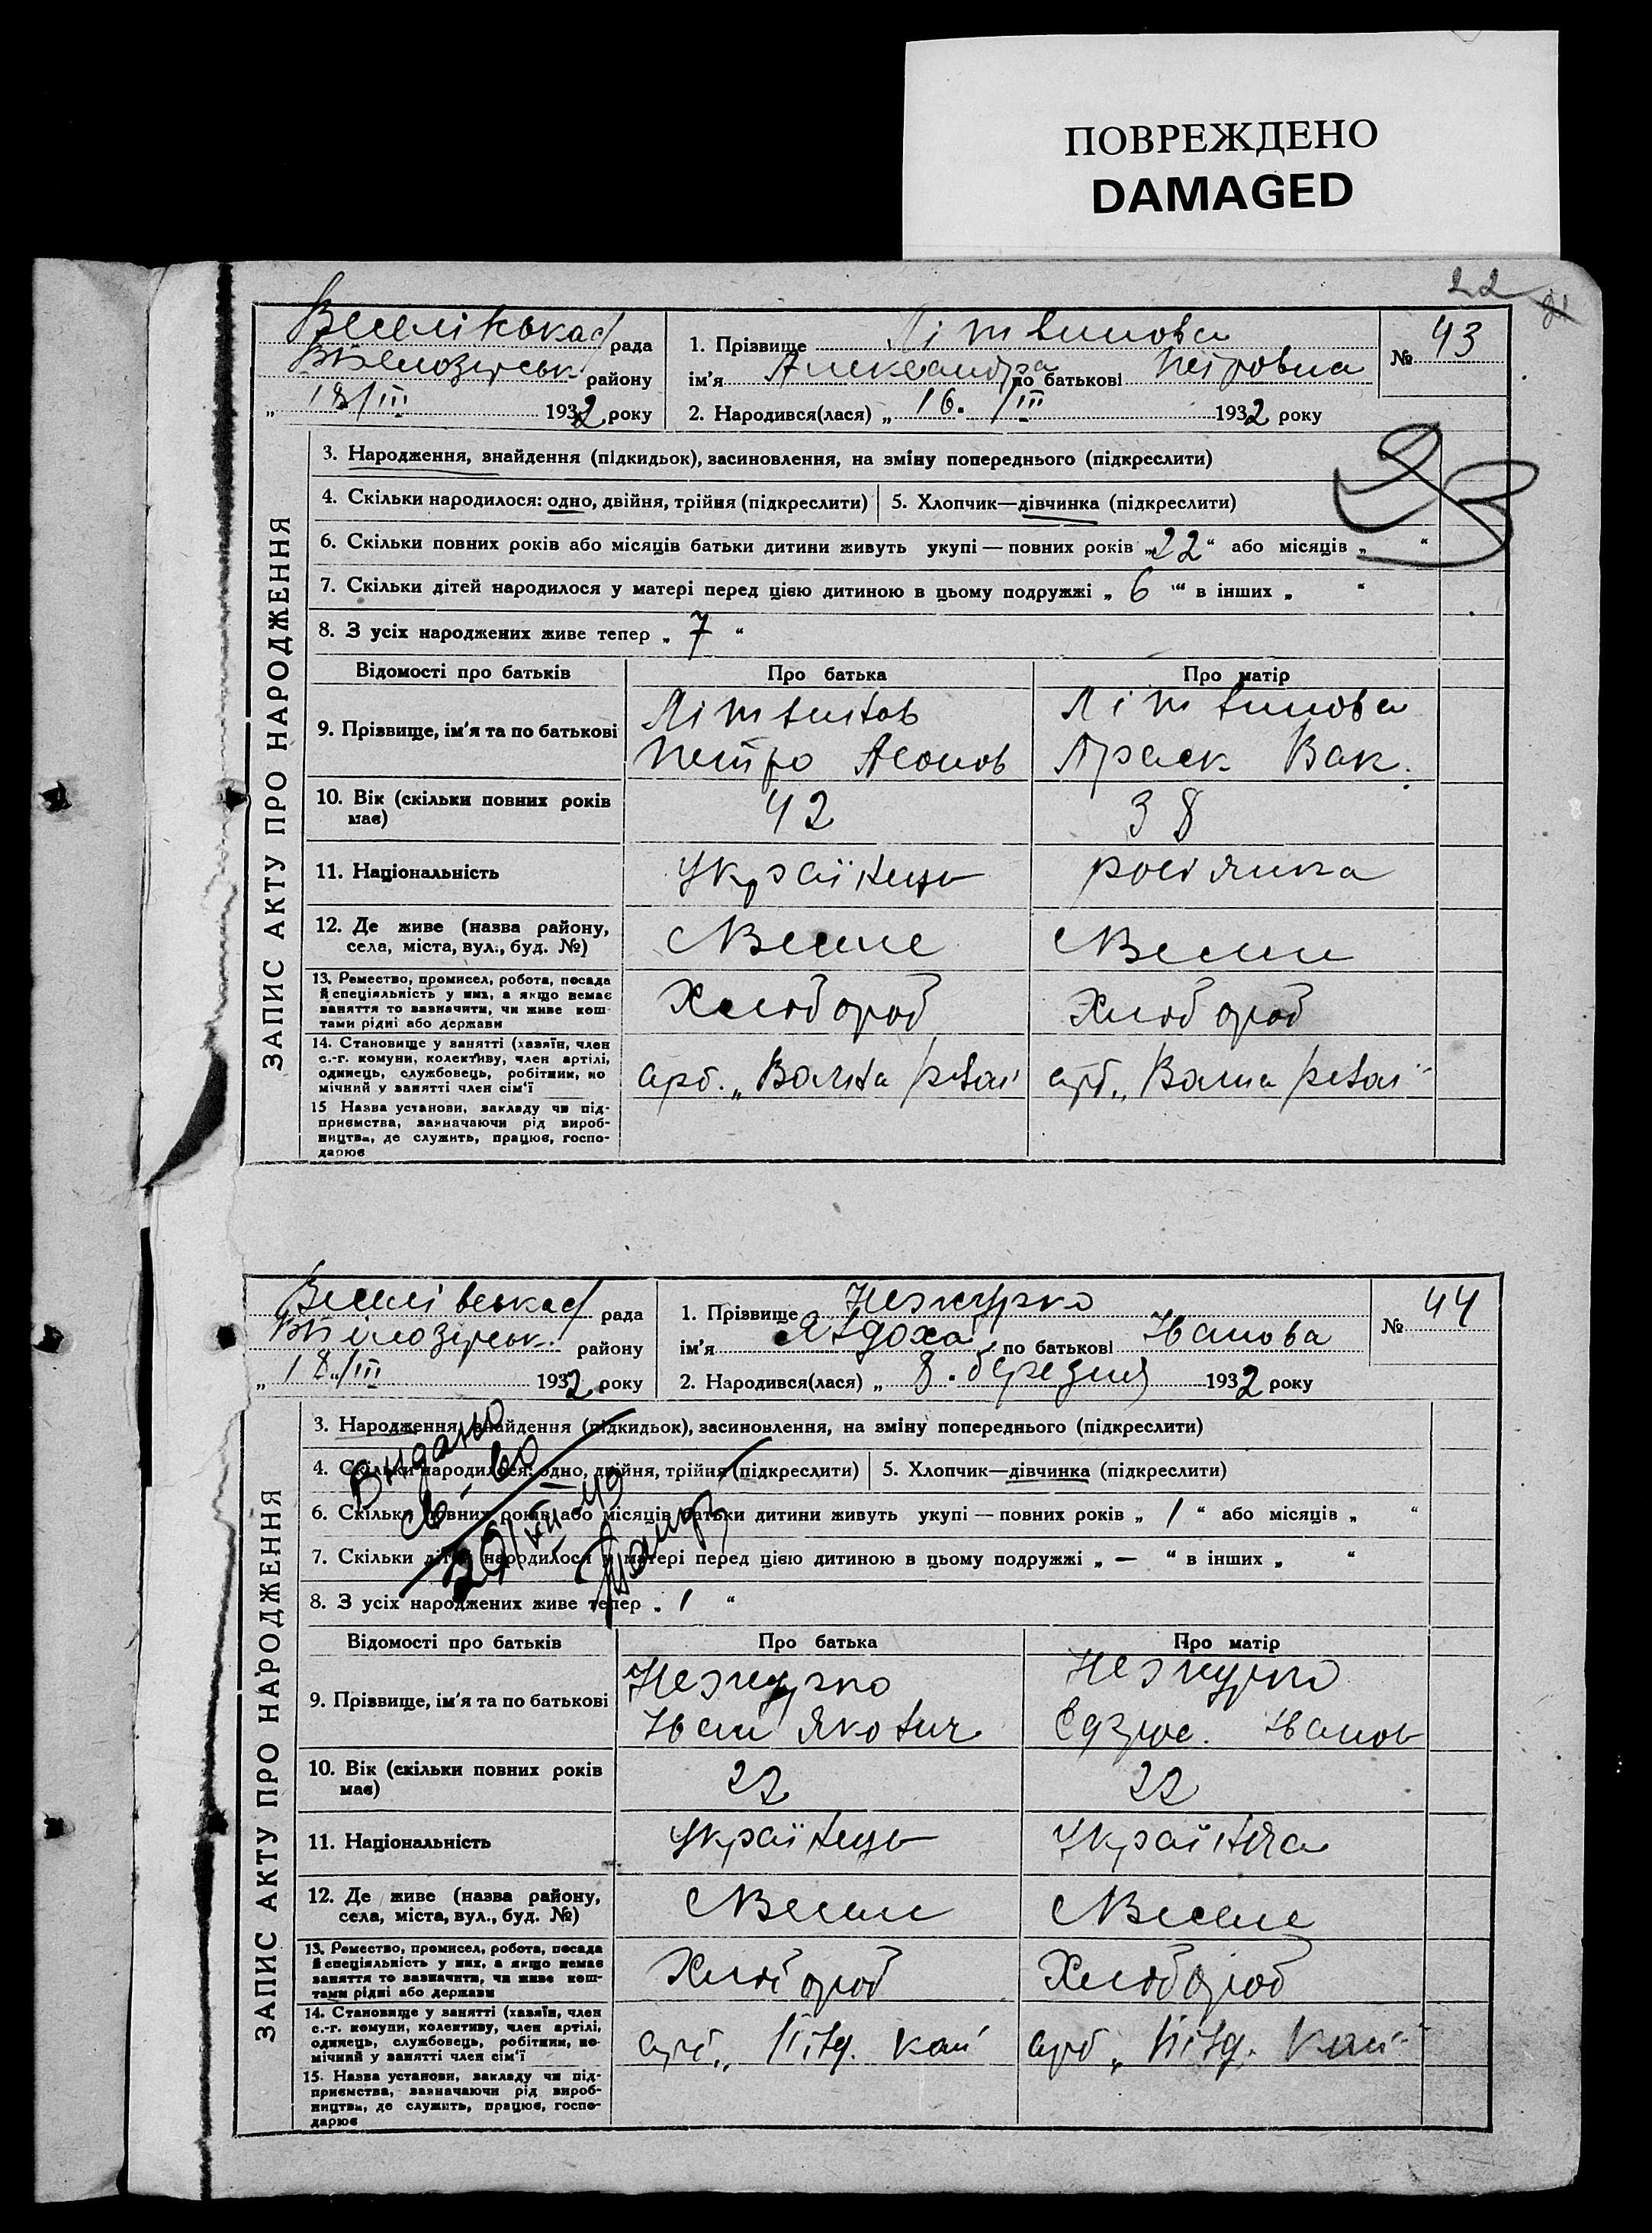 ПОВРЕЖДЕНО
DAMAGED
22
ЗАПИС АКТУ ПРО НАРОДЖЕННЯ
рада
району
„ 18/III 1932 року
1. Прізвище Літвинова
ім'я Александра по батькові Петровна
2. Народився(лася) „ 16. /III 1932 року
№ 43
3. Народження, знайдення (підкидьок), засиновлення, на зміну попереднього (підкреслити)
4. Скільки народилося: одно, двійня, трійня (підкреслити) 5. Хлопчик—дівчинка (підкреслити)
6. Скільки повних років або місяців батьки дитини живуть укупі — повних років „22“ або місяців „ “
7. Скільки дітей народилося у матері перед цією дитиною в цьому подружжі „ 6 “ в інших „ “
8. З усіх народжених живе тепер „ 7 “
Відомості про батьків Про батька Про матір
9. Прізвище, ім'я та по батькові Літвинов Літвинова
Петро Леонов Праск Вак.
10. Вік (скільки повних років має) 42 38
11. Національність Українець росіянка
12. Де живе (назва району, села, міста, вул., буд. №) с Веселе с Веселе
13. Ремество, промисел, робота, посада й спеціяльність у них, а якщо немає заняття то зазначити, чи живе коштами рідні або держави Хлібороб Хлібороб
14. Становище у занятті (хазяїн, член с.-г. комуни, колективу, член артілі, одинець, службовець, робітник, помічний у занятті член сім'ї
15 Назва установи, закладу чи підприємства, зазначаючи рід виробництва, де служить, працює, господарює
ЗАПИС АКТУ ПРО НАРОДЖЕННЯ
Веселівська с/рада
району
„ 18/III 1932 року
1. Прізвище Незжурко
ім'я Явдоха по батькові Іванова
2. Народився(лася) „ 8. березня 1932 року
№ 44
3. Народження, знайдення (підкидьок), засиновлення, на зміну попереднього (підкреслити)
4. Скільки народилося: одно, двійня, трійня (підкреслити) 5. Хлопчик—дівчинка (підкреслити)
6. Скільки повних років або місяців батьки дитини живуть укупі — повних років „ 1 “ або місяців „ “
7. Скільки дітей народилося у матері перед цією дитиною в цьому подружжі „ — “ в інших „ “
8. З усіх народжених живе тепер „ 1 “
Видано
св-во
29/XII-49
Відомості про батьків Про батька Про матір
9. Прізвище, ім'я та по батькові Незжурко Незжурко
Іван Якович Іванов
10. Вік (скільки повних років має) 22 22
11. Національність Українець Українка
12. Де живе (назва району, села, міста, вул., буд. №) с Веселе с Веселе
13. Ремество, промисел, робота, посада й спеціяльність у них, а якщо немає заняття то зазначити, чи живе коштами рідні або держави Хлібороб Хлібороб
14. Становище у занятті (хазяїн, член с.-г. комуни, колективу, член артілі, одинець, службовець, робітник, помічний у занятті член сім'ї
15. Назва установи, закладу чи підприємства, зазначаючи рід виробництва, де служить, працює, господарює